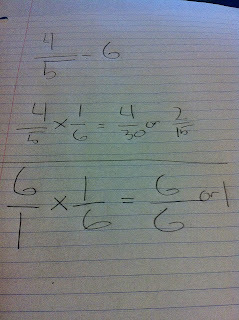 4/5 - 6
4/5 × 1/6 = 4/30 or 2/15
6/1 × 1/6 = 6/6 or 1